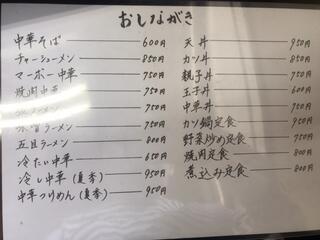 おしながき
中華そば 600円
チャーシューメン 850円
マーボー中華 750円
焼肉中華 750円
750円
味噌ラーメン 750円
五目ラーメン 800円
冷たい中華 650円
冷し中華(夏季) 950円
中華つけめん(夏季) 950円
天丼 950円
カツ丼 850円
親子丼 750円
玉子丼 600円
中華丼 750円
カツ鍋定食 950円
野菜炒め定食 750円
焼肉定食 800円
煮込み定食 800円